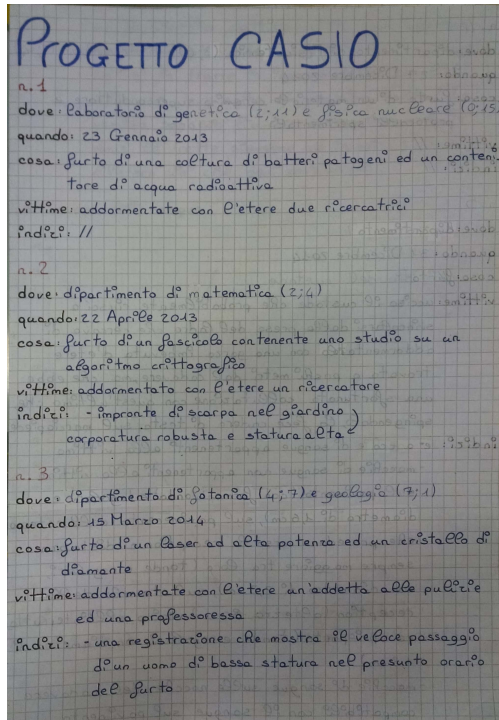 PROGETTO CASIO
n.1
dove: laboratorio di genetica (2;11) e fisica nucleare (0;15)
quando: 23 Gennaio 2013
cosa: furto di una coltura di batteri patogeni ed un conteni-
tore di acqua radioattiva
vittime: addormentate con l'etere due ricercatrici
indizi: //
n.2
dove: dipartimento di matematica (2;4)
quando: 22 Aprile 2013
cosa: furto di un fascicolo contenente uno studio su un
algoritmo crittografico
vittime: addormentato con l'etere un ricercatore
indizi: - impronte di scarpa nel giardino
corporatura robusta e statura alta
n.3
dove: dipartimento di fotonica (4;7) e geologia (7;1)
quando: 15 Marzo 2014
cosa: furto di un laser ad alta potenza ed un cristallo di
diamante
vittime: addormentate con l'etere un'addetta alle pulizie
ed una professoressa
indizi: - una registrazione che mostra il veloce passaggio
di un uomo di bassa statura nel presunto orario
del furto